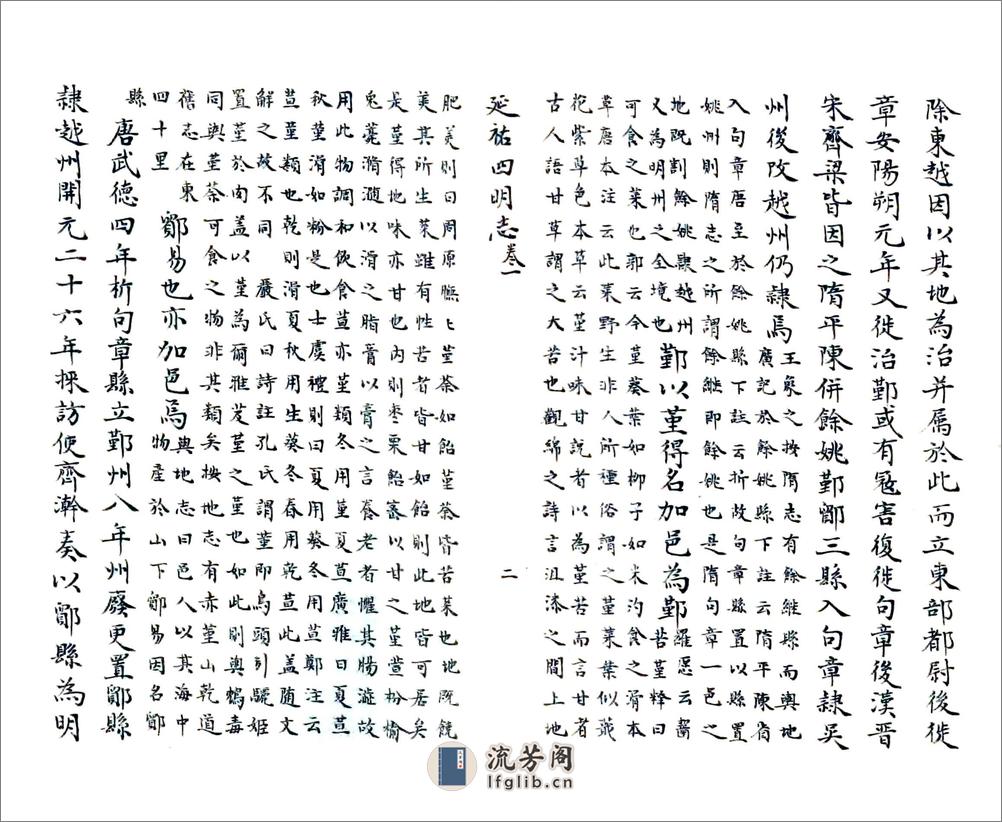 除東越因以其地為治并属於此而立東部都尉後徙
章安陽朔元年又徙治鄞或有寇害復徙句章後漢晋
宋齊梁皆因之隋平陳併餘姚鄞鄮三縣入句章隷吴
州後改越州仍隷焉王象之按隋志有餘繼縣而輿地
廣記於餘姚縣下註云隋平陳省
入句章唐至於餘姚縣下註云折故句章縣置以縣置
姚州則隋志之所謂餘繼即餘姚也是隋句章一邑之
地既割餘姚隷越州
又為明州之全境也鄞以堇得名加邑為鄞羅愿云齧
苦堇释曰
可食之菜也郭云今堇葵葉如柳子如米汋食之滑本
草唐本注云此菜野生非人所種俗謂之堇菜葉似蕺
花紫草色本草云堇汁味甘説者以為堇苦而言甘者
古人語甘草謂之大苦也觀綿之詩言沮漆之間上地
延祐四明志卷一 二
肥美則曰周原膴〻堇荼如飴堇荼皆苦菜也地既饒
美其所生菜雖有性苦者皆甘如飴則此地皆可居矣
是堇得地味亦甘也内則枣栗飴蜜以甘之堇荁枌榆
兔薧滫瀡以滑之脂膏以膏之言養老者懼其腸澁故
用此物調和飲食荁亦堇類冬用堇夏荁廣雅曰夏荁
秋堇滑如粉是也士虞禮則曰夏用葵冬用荁鄭注云
荁堇類也乾則滑夏秋用生葵冬春用乾荁此盖随文
解之故不同 嚴氏曰詩註孔氏謂堇即烏頭引驪姬
置堇於肉盖以堇為爾雅芨堇之堇也如此則與鴆毒
同與堇荼可食之物非其類矣按地志有赤堇山乾道
舊志在東
四十里鄮易也亦加邑焉輿地志曰邑人以其海中
物產於山下鄮易因名鄮
縣
唐武德四年析句章縣立鄞州八年州廢更置鄮縣
隷越州開元二十六年採訪使齊澣奏以鄮縣為明
流芳阁
lfglib.cn